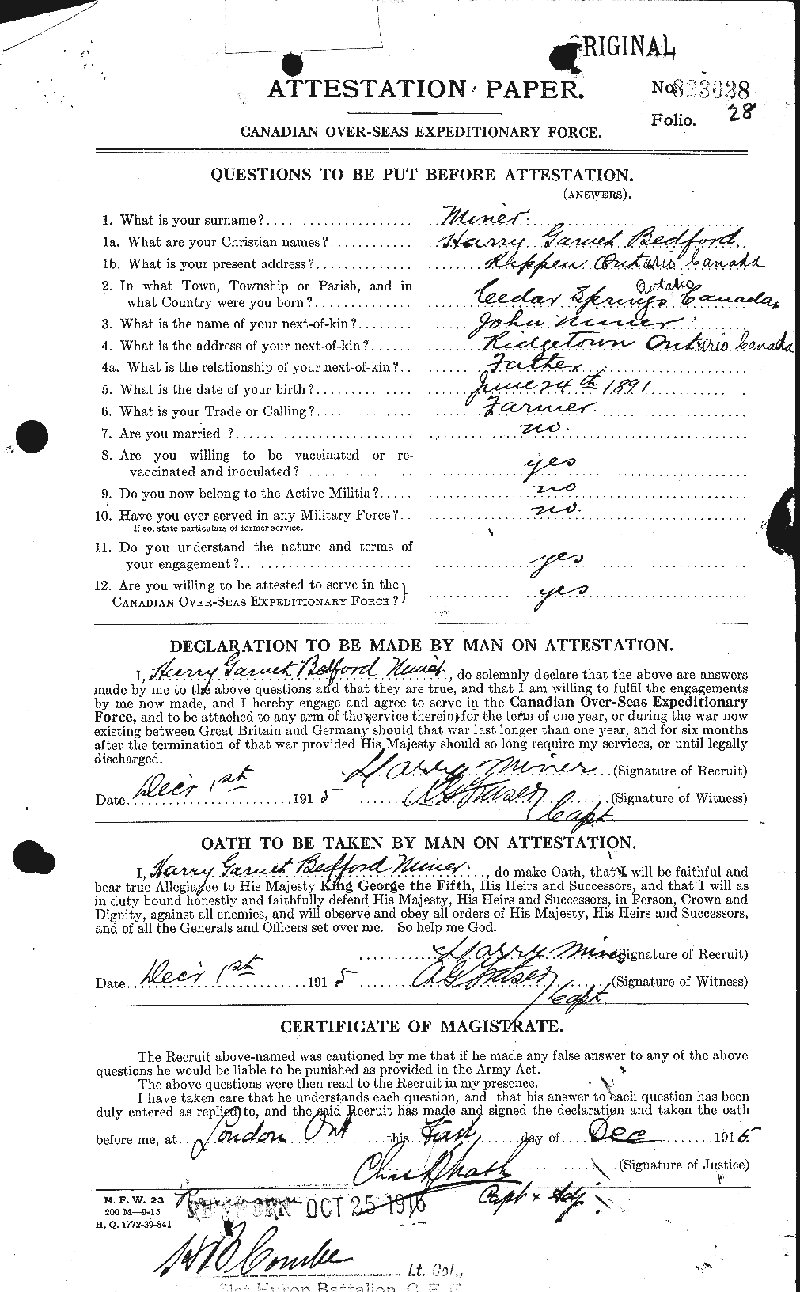 ORIGINAL
ATTESTATION PAPER.
No.
Folio. 28
CANADIAN OVER-SEAS EXPEDITIONARY FORCE.
QUESTIONS TO BE PUT BEFORE ATTESTATION.
(ANSWERS).
1. What is your surname? Miner.
1a. What are your Christian names? Harry Garnet Bedford
1b. What is your present address? Kippen Ontario Canada
2. In what Town, Township or Parish, and in
what Country were you born? Cedar Springs Ontario Canada
3. What is the name of your next-of-kin? John Miner
4. What is the address of your next-of-kin? Ridgetown Ontario Canada
4a. What is the relationship of your next-of-kin? Father
5. What is the date of your birth? June 24th 1891
6. What is your Trade or Calling? Farmer
7. Are you married? no.
8. Are you willing to be vaccinated or re-
vaccinated and inoculated? yes
9. Do you now belong to the Active Militia? no
10. Have you ever served in any Military Force? no.
If so, state particulars of former service.
11. Do you understand the nature and terms of
your engagement? yes
12. Are you willing to be attested to serve in the
CANADIAN OVER-SEAS EXPEDITIONARY FORCE? yes
DECLARATION TO BE MADE BY MAN ON ATTESTATION.
I, Harry Garnet Bedford Miner, do solemnly declare that the above are answers
made by me to the above questions and that they are true, and that I am willing to fulfil the engagements
by me now made, and I hereby engage and agree to serve in the Canadian Over-Seas Expeditionary
Force, and to be attached to any arm of the service therein, for the term of one year, or during the war now
existing between Great Britain and Germany should that war last longer than one year, and for six months
after the termination of that war provided His Majesty should so long require my services, or until legally
discharged.
Harry Miner (Signature of Recruit)
Date Dec'r 1st 1915 Capt (Signature of Witness)
OATH TO BE TAKEN BY MAN ON ATTESTATION.
I, Harry Garnet Bedford Miner, do make Oath, that I will be faithful and
bear true Allegiance to His Majesty King George the Fifth, His Heirs and Successors, and that I will as
in duty bound honestly and faithfully defend His Majesty, His Heirs and Successors, in Person, Crown and
Dignity, against all enemies, and will observe and obey all orders of His Majesty, His Heirs and Successors,
and of all the Generals and Officers set over me. So help me God.
Harry Miner (Signature of Recruit)
Date Dec'r 1st 1915 Capt (Signature of Witness)
CERTIFICATE OF MAGISTRATE.
The Recruit above-named was cautioned by me that if he made any false answer to any of the above
questions he would be liable to be punished as provided in the Army Act.
The above questions were then read to the Recruit in my presence.
I have taken care that he understands each question, and that his answer to each question has been
duly entered as replied to, and the said Recruit has made and signed the declaration and taken the oath
before me, at London Ont this First day of Dec 1915
(Signature of Justice)
M. F. W. 23 OCT 25 1916 Capt & Adj
200 M—9-15
H. Q. 1772-39-841
Combe
Lt. Col.,
Huron Battalion, C. E. F.